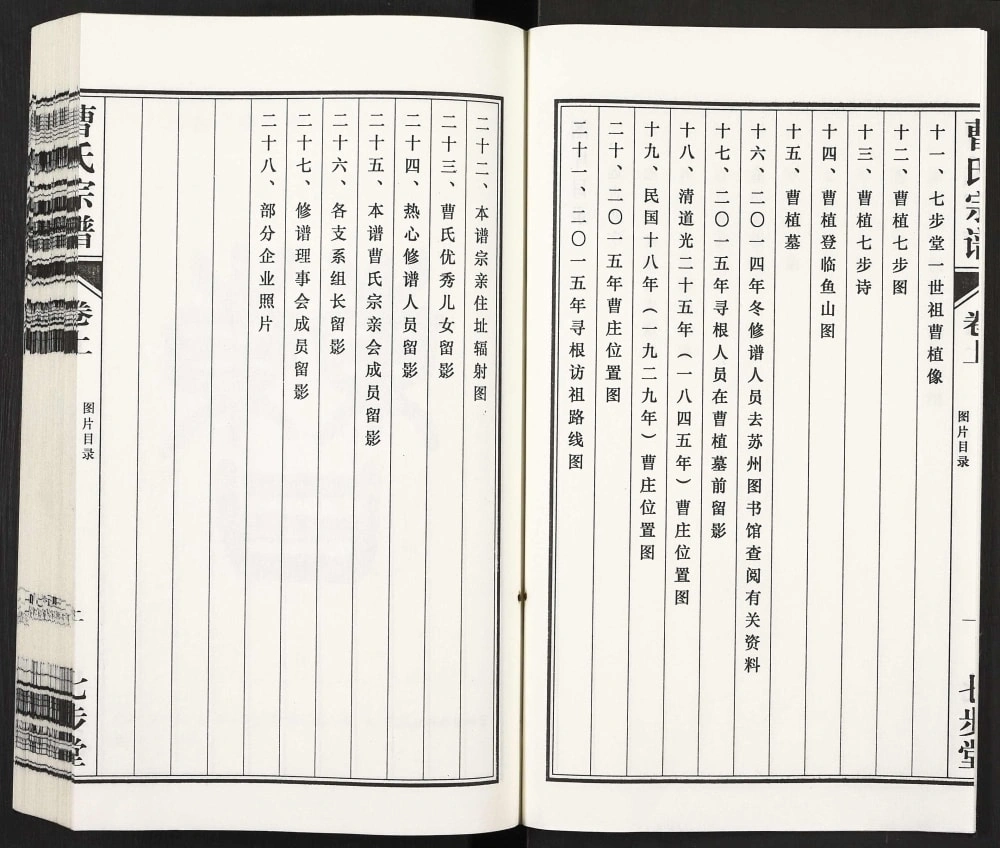 曹氏宗谱
卷上
图片目录
一
七步堂
十一、七步堂一世祖曹植像
十二、曹植七步图
十三、曹植七步诗
十四、曹植登临鱼山图
十五、曹植墓
十六、二〇一四年冬修谱人员去苏州图书馆查阅有关资料
十七、二〇一五年寻根人员在曹植墓前留影
十八、清道光二十五年（一八四五年）曹庄位置图
十九、民国十八年（一九二九年）曹庄位置图
二十、二〇一五年曹庄位置图
二十一、二〇一五年寻根访祖路线图
二十二、本谱宗亲住址辐射图
二十三、曹氏优秀儿女留影
二十四、热心修谱人员留影
二十五、本谱曹氏宗亲会成员留影
二十六、各支系组长留影
二十七、修谱理事会成员留影
二十八、部分企业照片
曹氏宗谱
卷上
图片目录
二
七步堂